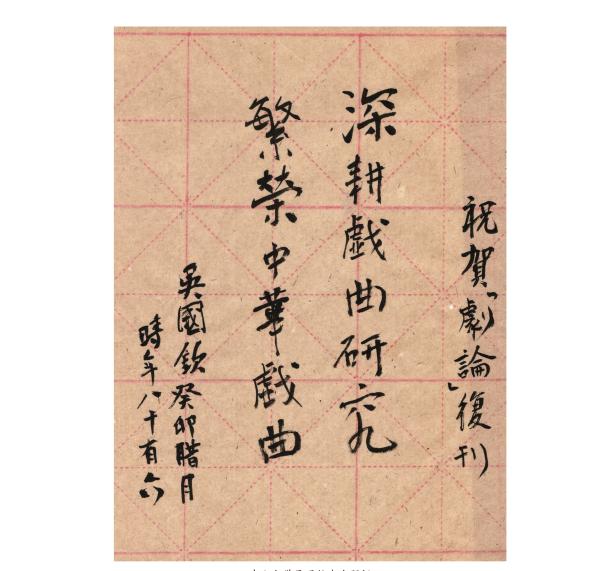 祝賀「劇論」復刊
深耕戯曲研究
繁榮中華戯曲
吳國欽癸卯腊月
時年八十有六